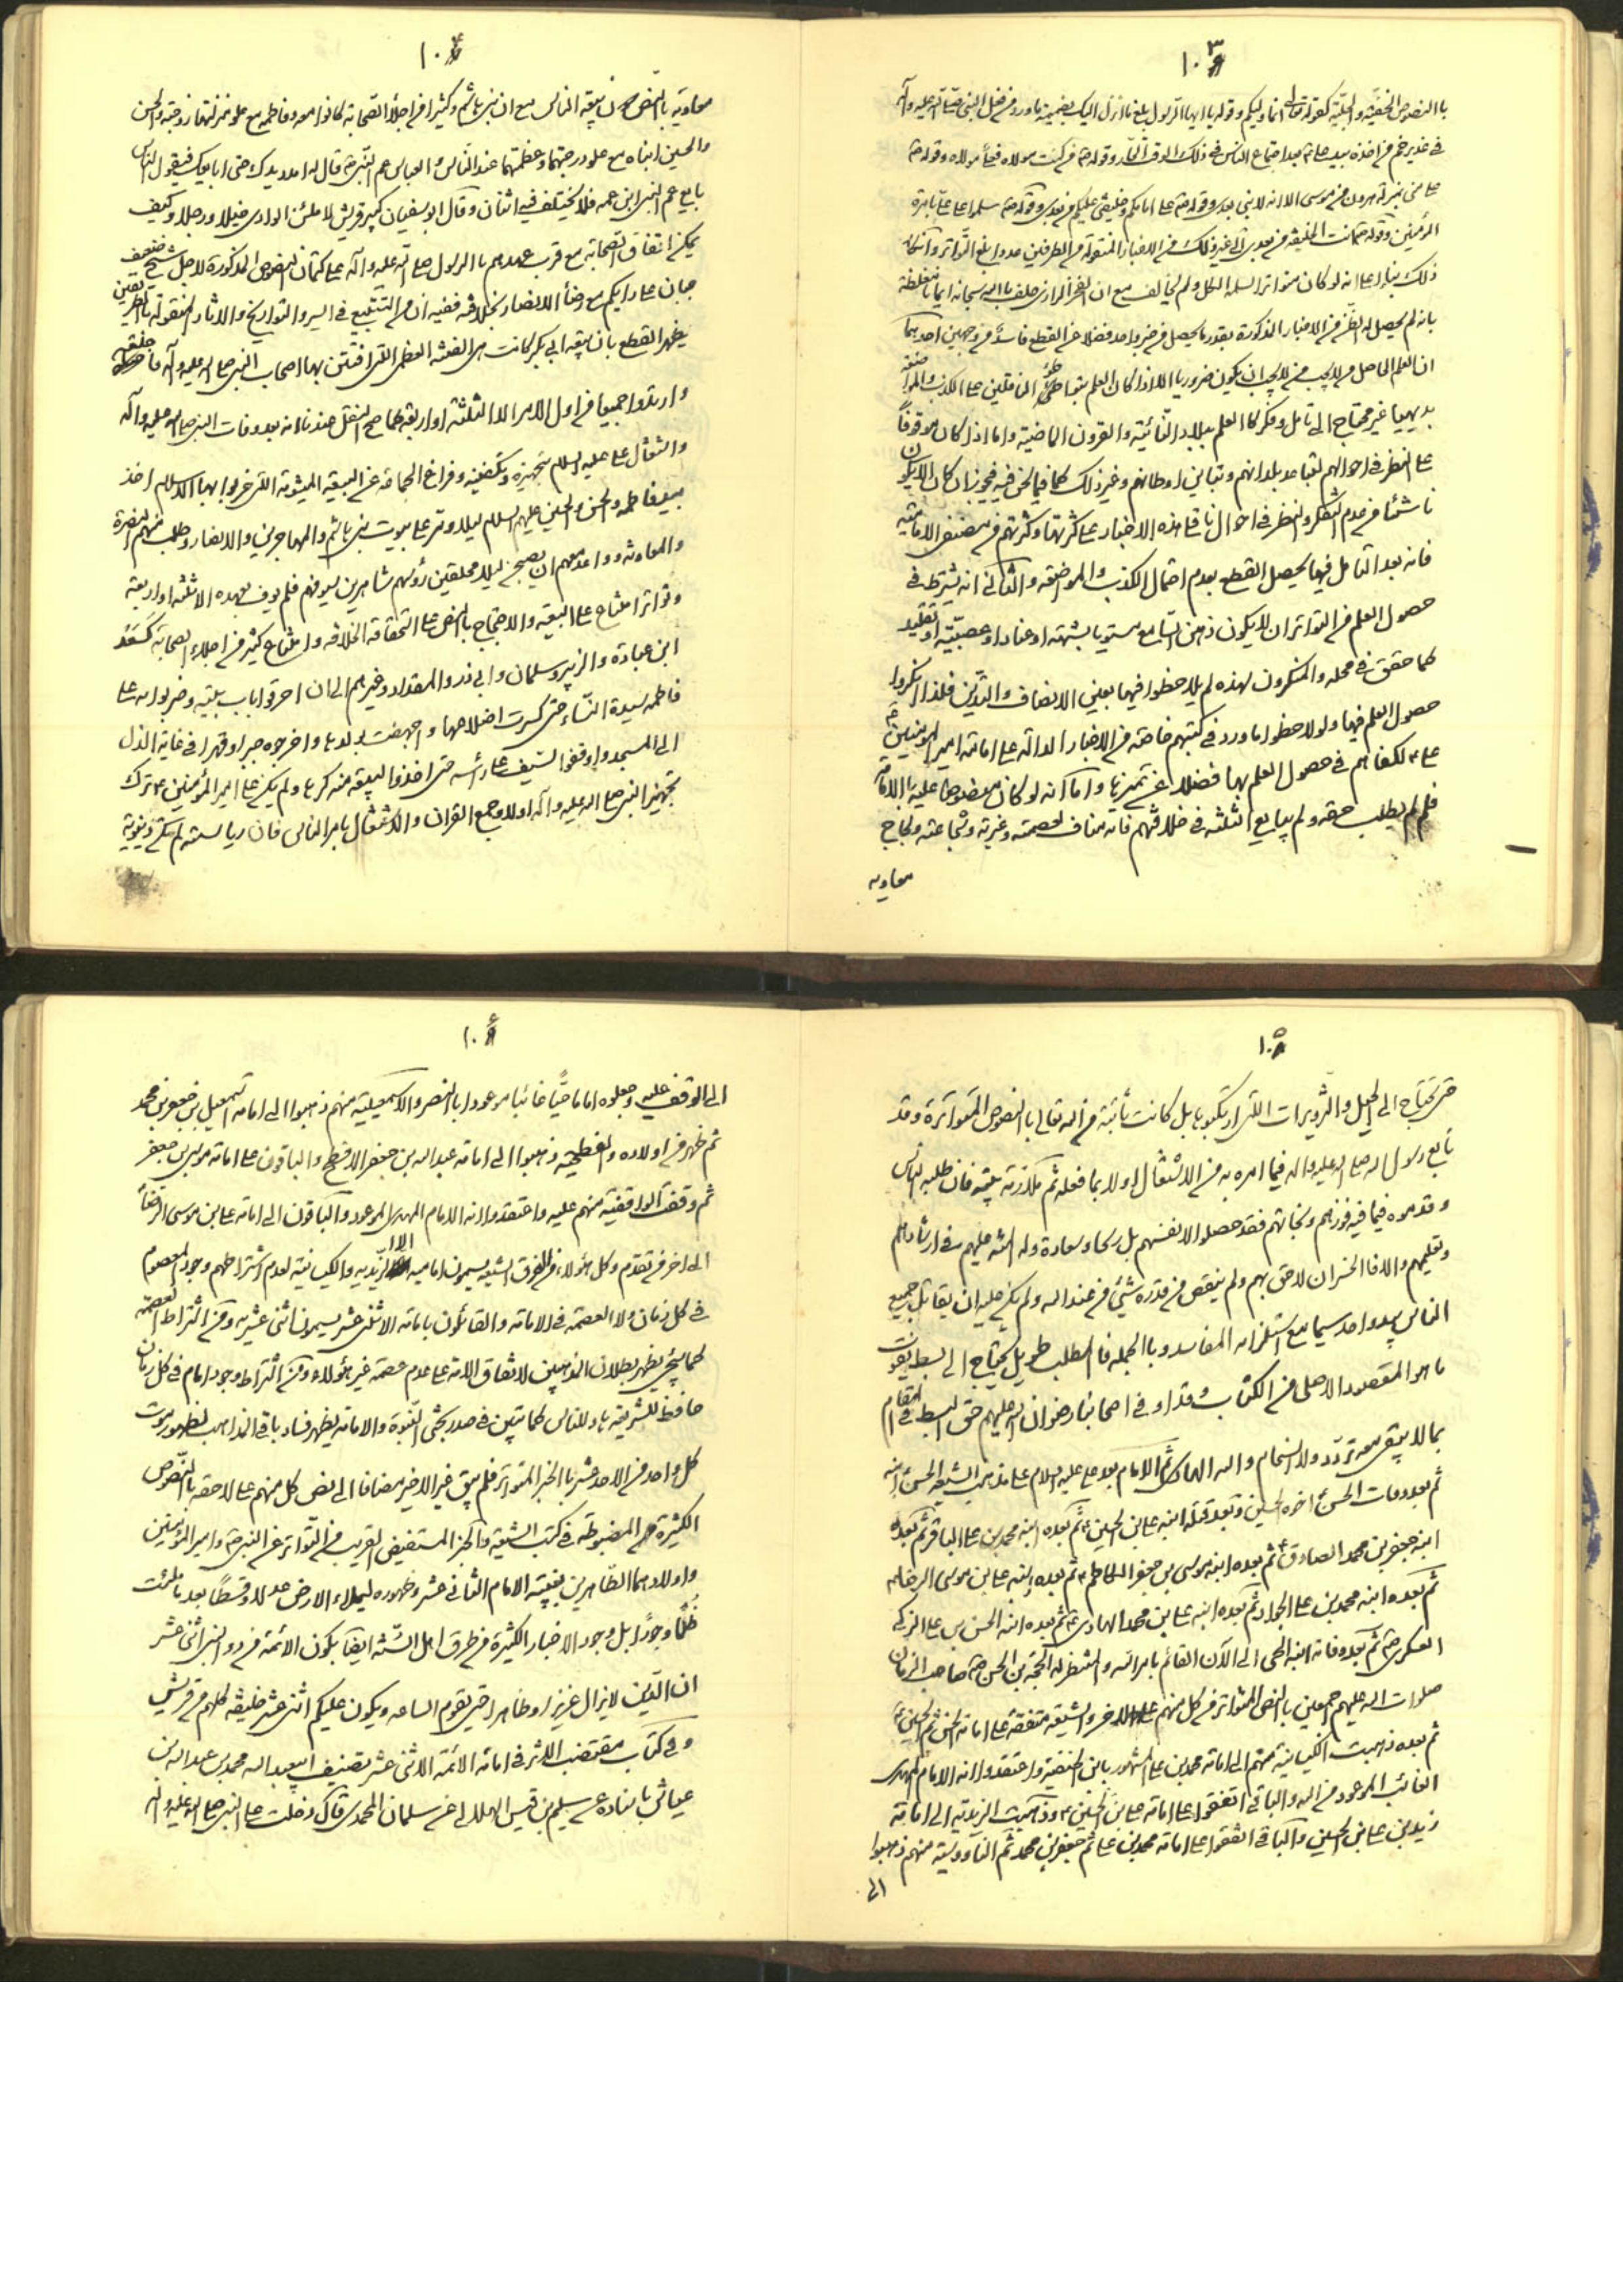 ١٠٣
باالنصوص الخفية والجلية كقوله تعالى انما وليكم وقوله يا ايها الرسول بلغ ما انزل اليك بضميمة ما ورد من فعل النبي صلى الله عليه وآله
في غدير خم من اخذه بيد علي بعد اجتماع الناس في ذلك الوقت الحار وقوله من كنت مولاه فعلي مولاه وقوله
علي مني بمنزلة هرون من موسى الا انه لا نبي بعدي وقوله علي امامكم وخليفتي عليكم من بعدي وقوله سلموا على علي بامرة
المؤمنين وقوله انت الخليفة من بعدي الى غير ذلك من الاخبار المنقولة من الطرفين عددا بلغ التواتر وانكار
ذلك بناء على انه لو كان متواترا لسلمه الكل ولم يخالف مع ان الفخر الرازي حلف باالله سبحانه ايمانا مغلظة
بانه لم يحصل له الظن من الاخبار المذكورة بقدر ما يحصل من خبر واحد فضلا عن القطع فاسد من وجهين احدهما
ان العلم الحاصل لا يجب ان يكون ضروريا الا اذا كان العلم بتواطئ الناقلين على الكذب والمواضعة
بديهيا غير محتاج الى تامل وفكر كاالعلم ببلاد النائية والقرون الماضية واما اذا كان موقوفا
على النظر في احوالهم لتباعد بلدانهم وتباين اوطانهم وغير ذلك كما فيما نحن فيه فيجوز ان كان الا يكون
ناشئا من عدم التفكر والنظر في احوال ناقلي هذه الاخبار على كثرتها وكثرتهم من مصنفي الامامية
فانه بعد التامل فيها يحصل القطع بعدم احتمال الكذب والمواضعة والثاني انه يشترط في
حصول العلم من التواتر ان لا يكون ذهن السامع مسبوقا بشبهة او عناد او عصبية او تقليد
كما حقق في محله والمنكرون لهذه لم يلاحظوا فيها بعين الانصاف والتدين فلذا انكروا
حصول العلم فيها ولو لاحظوا ما ورد في كتبهم خاصة من الاخبار الدالة على امامة امير المؤمنين
علي لكفاهم في حصول العلم بها فضلا عن غيرها واما انه لو كان منصوصا عليه باالامامة
فلم لم يطلب حقه ولم يبايع الثلثة في خلافتهم فانه مناف لعصمته وغيرته وشجاعته ولجاج
معاويه
١٠٤
معاوية باالنص بيعة الناس مع ان بني هاشم وكثيرا من اجلاء الصحابة كانوا معه وفاطمة مع علو منزلتها زوجته والحسن
والحسين ابناه مع علو درجتهما وعظمتهما عند الناس والعباس عم النبي قال له امدد يدك حتى ابايعك فيقول الناس
بايع عم النبي ابن عمه فلا يختلف فيه اثنان وقال ابو سفيان كبير قريش لاملئن الوادي خيلا ورجلا وكيف
يمكن اتفاق الصحابة مع قرب عهدهم باالرسول صلى الله عليه وآله على كتمان النصوص المذكورة لاجل شيخ ضعيف
جبان على رايكم مع رضاء الانصار بخلافه ففيه ان من التتبع في السير والتواريخ والاثار المنقولة باالطريقين
يظهر القطع بان بيعة ابي بكر كانت هي الفتنة العظمى التي افتتن بها اصحاب النبي صلى الله عليه وآله
وارتدوا جميعا من اول الامر الا الثلثة او اربعة كما صح النقل عندنا انه بعد وفات النبي صلى الله عليه وآله
واشتغال علي عليه السلام بتجهيزه وتكفينه وفراغ الجماعة عن البيعة الميشومة التي خربوا بها الاسلام اخذ
بيد فاطمة والحسن والحسين عليهم السلام ليلا ودر على بيوت بني هاشم والمهاجرين والانصار وطلب منهم النصرة
والمعاونة وواعدهم ان يصبح ليلا محلقين رؤسهم شاهرين سيوفهم فلم يوف بعهده الا ثلثة او اربعة
وتواتر امتناع علي البيعة والاحتجاج باالنص على استحقاقه الخلافة وامتناع كثير من اجلاء الصحابة كسعد
ابن عبادة والزبير وسلمان وابي ذر والمقداد وغيرهم الى ان احرقوا باب بيته وضربوا
فاطمة سيدة النساء حتى كسرت اضلاعها واجهضت ولدها واخرجوه جبرا وقهرا في غاية الذل
الى المسجد واوقفوا السيف على رأسه حتى اخذوا البيعة منه كرها ولم يكن على امير المؤمنين ترك
تجهيز النبي صلى الله عليه وآله اولا وجمع القران والاشتغال بامر الناس فان رياسته لم تكن دنيوية
١٠٥
حتى يحتاج الى الحيل والتزويرات التي ارتكبوها بل كانت ثابتة من الله تعالى باالنصوص المتواترة وقد
تابع رسول الله صلى الله عليه واله فيما امره به من الاشتغال اولا بما فعله ثم ملازمة بيته فان طلبه الناس
وقدموه فيما فيه فوزهم ونجاتهم فقد حصلوا لانفسهم بل ربحا وسعادة وله المنة عليهم في ارشادهم
وتعليمهم والا فاالخسران لاحق بهم ولم ينقص من قدره شئ من عند الله ولم يكن عليه ان يقاتل جميع
الناس بيد واحد سيما مع استلزامه المفاسد وباالجملة فاالمطلب طويل يحتاج الى بسط يفوت
ما هو المقصود الاصلي من الكتاب وقد اوفى اصحابنا رضوان الله عليهم حق البسط في المقام
بما لا يبقى معه تردد ولا استحكام والله الهادي ثم الامام بعد علي عليه السلام على مذهب الشيعة الحسن ابنه
ثم بعد وفات الحسن اخوه الحسين وبعد قتله ابنه علي بن الحسين ثم بعده ابنه محمد بن علي الباقر ثم بعده
ابنه جعفر بن محمد الصادق ثم بعده ابنه موسى بن جعفر الكاظم ثم بعده ابنه علي بن موسى الرضا
ثم بعده ابنه محمد بن علي الجواد ثم بعده ابنه علي بن محمد الهادي ثم بعده ابنه الحسن بن علي الزكي
العسكري ثم بعد وفاته ابنه الحي الى الآن القائم بامر الله والمنتظر له الحجة بن الحسن صاحب الزمان
صلوات الله عليهم اجمعين باالنص المتواتر من كل منهم على الاخر والشيعة متفقة على امامة الحسن ثم الحسين
ثم بعده ذهبت الكيسانية منهم الى امامة محمد بن علي المشهور بابن الحنفية واعتقدوا انه الامام المهدي
الغائب الموعود من الله والباقي اتفقوا على امامة علي بن الحسين وذهبت الزيدية الى امامة
زيد بن علي بن الحسين والباقي اتفقوا على امامة محمد بن علي ثم جعفر بن محمد ثم الناووسية منهم ذهبوا
الى
١٠٦
الى الوقف عليه وجعلوه اماما حيا غائبا موعودا باالنصر والاسمعيلية منهم ذهبوا الى امامة اسمعيل بن جعفر بن محمد
ثم ظهر من اولاده والفطحية ذهبوا الى امامة عبد الله بن جعفر الافطح والباقون على امامة موسى بن جعفر
ثم وقفت الواقفية منهم عليه واعتقدوا انه الامام المهدي الموعود والباقون الى امامة علي بن موسى الرضا
الى اخر من تقدم وكل هؤلاء من الفرق الشيعة يسمون امامية الا الزيدية والكيسانية لعدم اشتراطهم وجود المعصوم
في كل زمان ولا العصمة في الامامة والقائلون بامامة الاثنى عشر يسمون اثنى عشرية ومن اشتراط العصمة
كما سيجئ يظهر بطلان المذهبين لاتفاق الامة على عدم عصمة غير هؤلاء ومن اشتراط وجود امام في كل زمان
حافظ للشريعة هاد للناس كما تبين في صدر بحثي النبوة والامامة يظهر فساد باقي المذاهب لظهور موت
كل واحد من الاحد عشر باالخبر المتواتر فلم يبق غير الاخير مضافا الى نص كل منهم على لاحقه باالنصوص
الكثيرة المضبوطة في كتب الشيعة والخبر المستفيض القريب من التواتر عن النبي وامير المؤمنين
واولادهما الطاهرين بغيبة الامام الثاني عشر وظهوره ليملاء الارض عدلا وقسطا بعد ما ملئت
ظلما وجورا بل وجود الاخبار الكثيرة من طرق اهل السنة ايضا بكون الائمة من ورد النبي اثنى عشر
ان الدين لا يزال عزيزا وظاهرا حتى يقوم الساعة ويكون عليكم اثنى عشر خليفة كلهم من قريش
وفي كتاب مقتضب الاثر في امامة الائمة الاثنى عشر تصنيف ابي عبد الله محمد بن عبد الله بن
عياش باسناده عن سليم بن قيس الهلالي عن سلمان المحمدي قال دخلت على النبي صلى الله عليه واله